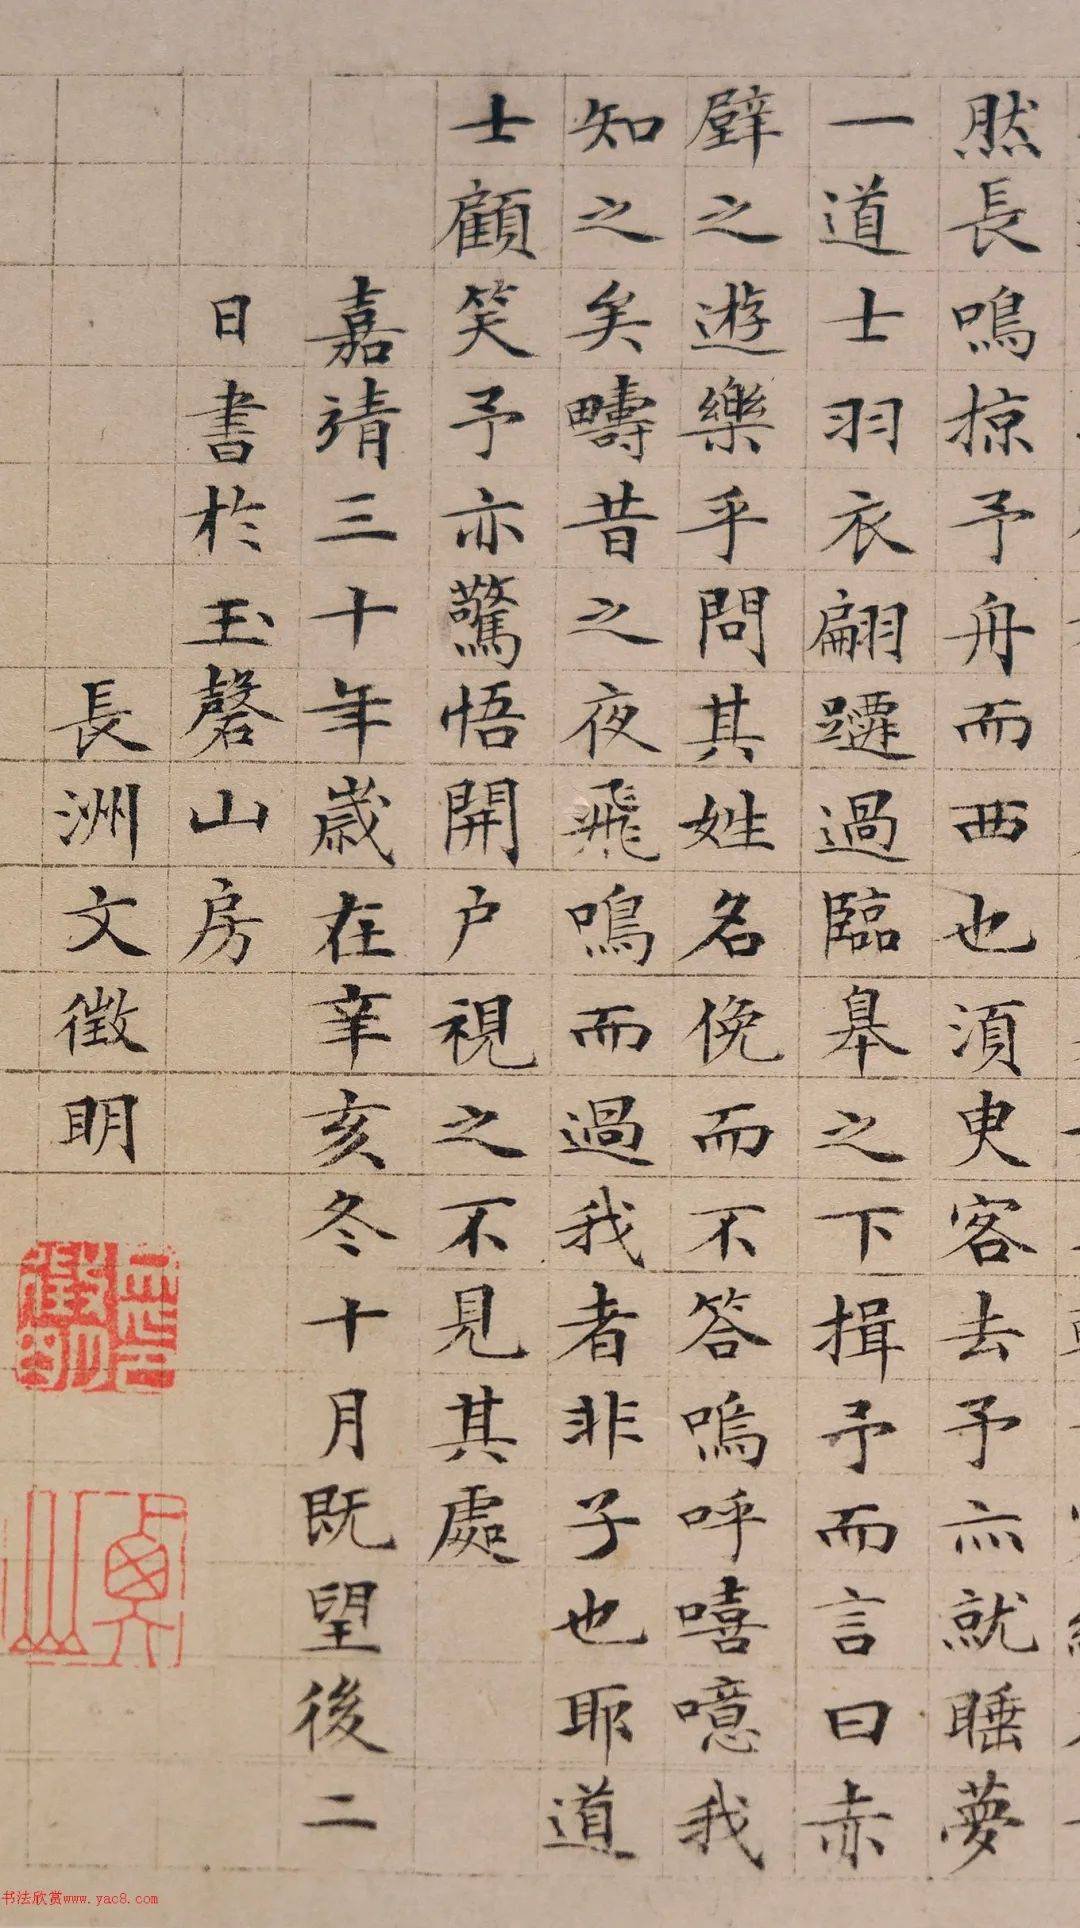 然長鳴掠予舟而西也須臾客去予亦就睡夢
一道士羽衣翩躚過臨臯之下揖予而言曰赤
壁之遊樂乎問其姓名俛而不答嗚呼噫嘻我
知之矣疇昔之夜飛鳴而過我者非子也耶道
士顧笑予亦驚悟開户視之不見其處
嘉靖三十年歲在辛亥冬十月既望後二
日書於玉磬山房
長洲文徵明
书法欣赏www.yac8.com